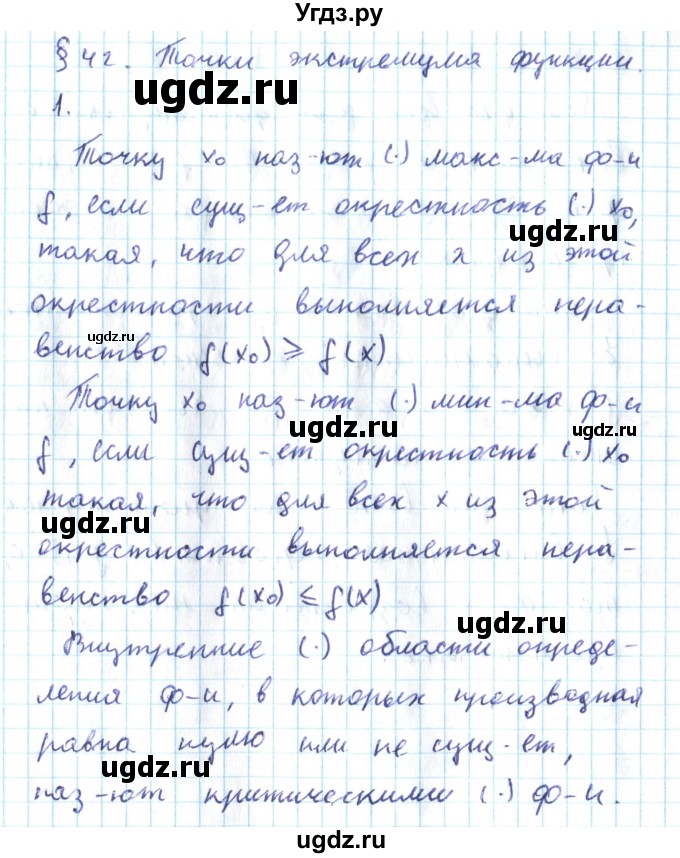 Угдз.ру
§ 42. Точки экстремума функции.
ugdz.ru
1.
Точку x₀ наз-ют (·) макс-ма ф-и
f, если сущ-ет окрестность (·) x₀,
ugdz.ru
такая, что для всех x из этой
окрестности выполняется нера-
ugdz.ru
венство f(x₀) ⩾ f(x)
Точку x₀ наз-ют (·) мин-ма ф-и
ugdz.ru
ugdz.ru
f, если сущ-ет окрестность (·) x₀
такая, что для всех x из этой
ugdz.ru
окрестности выполняется нера-
венство f(x₀) ⩽ f(x)
ugdz.ru
Внутренние (·) области опреде-
ления ф-и, в которых производная
равна нулю или не сущ-ет,
ugdz.ru
наз-ют критическими (·) ф-и.
ugdz.ru